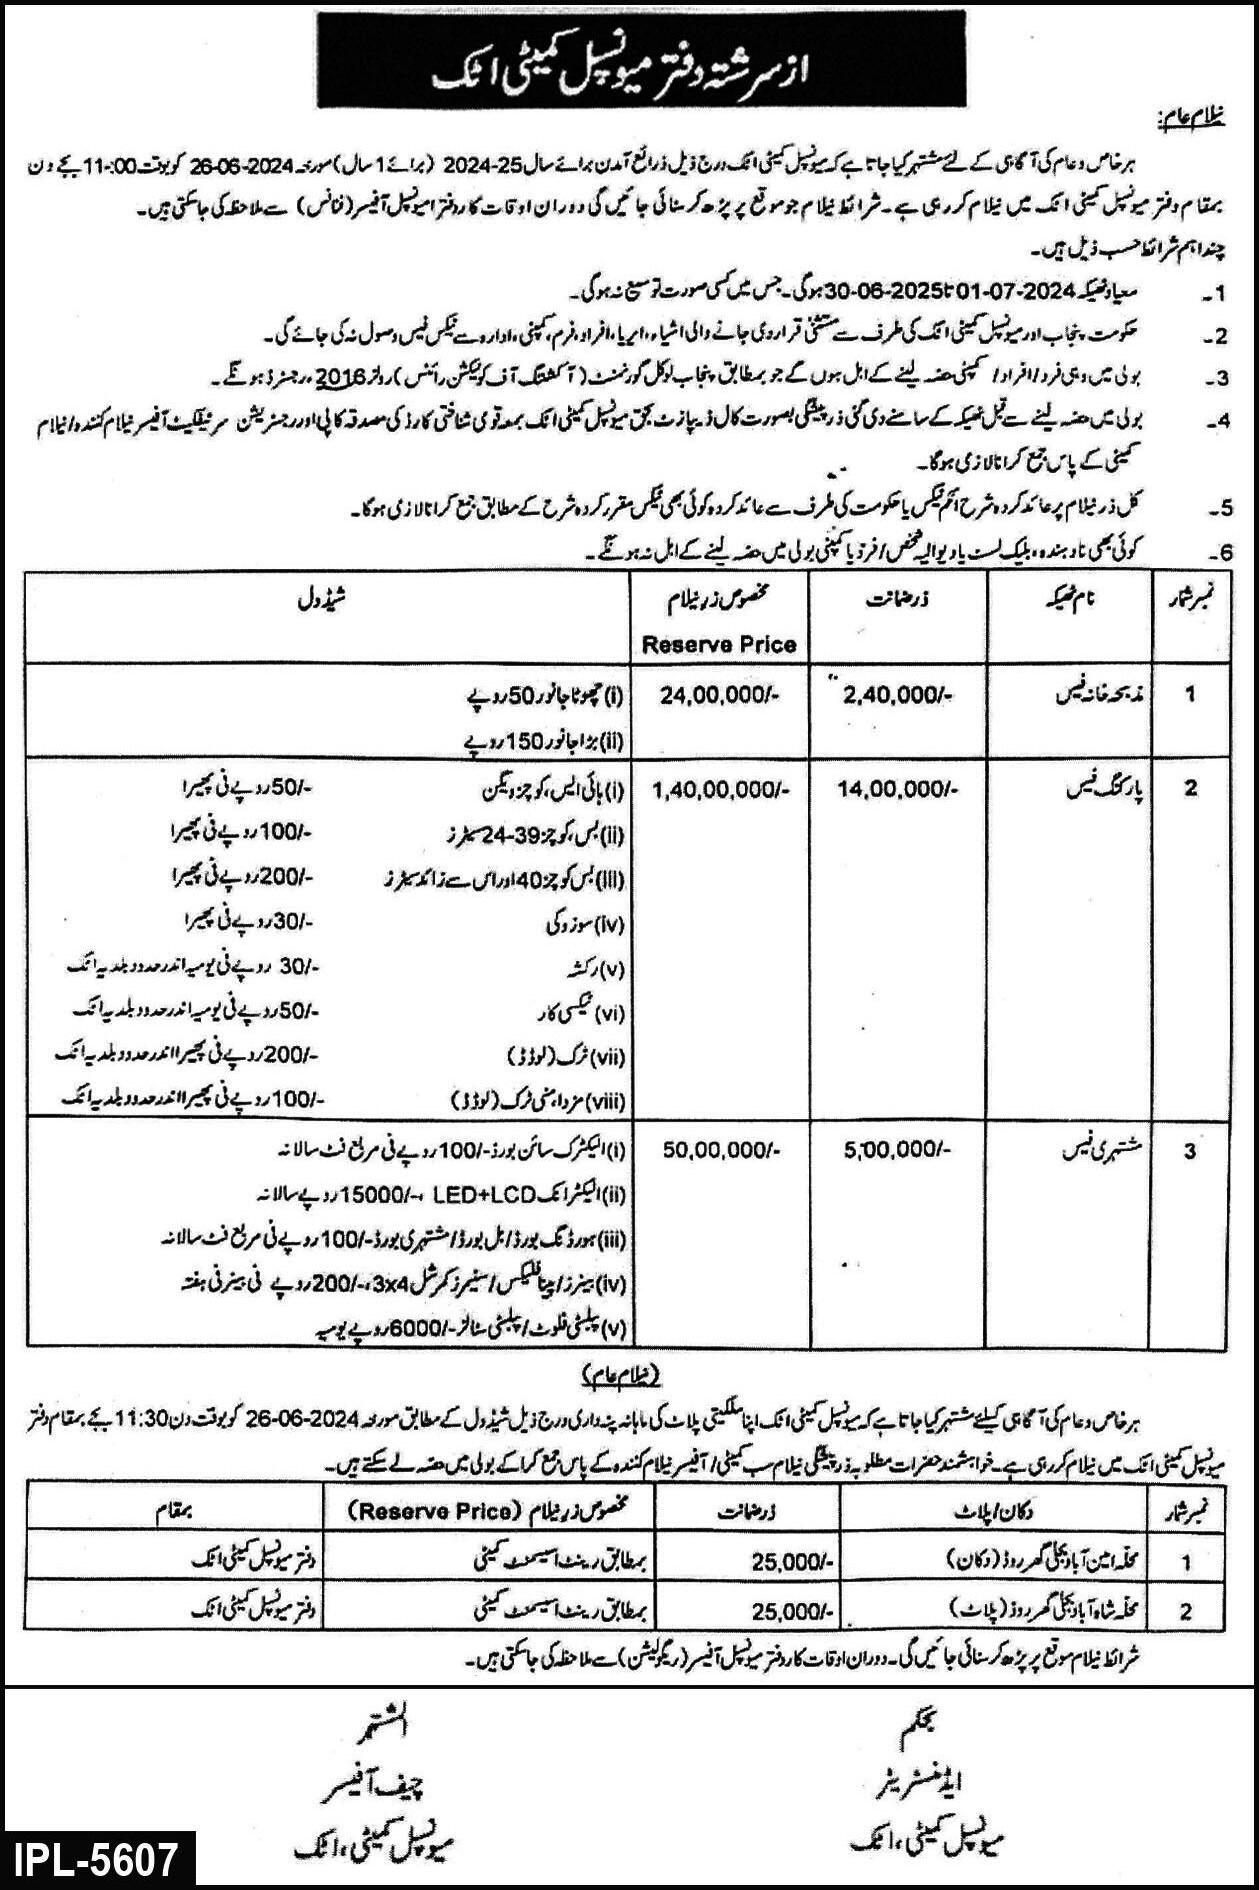 از سر شتہ دفتر میونسپل کمیٹی اٹک
نیلام عام:
ہر خاص و عام کی آگاہی کے لئے مشتہر کیا جاتا ہے کہ میونسپل کمیٹی اٹک درج ذیل ذرائع آمدن برائے سال 25-2024 (برائے 1 سال) مورخہ 2024-06-26 کو بوقت 11:00 بجے دن
بمقام دفتر میونسپل کمیٹی اٹک میں نیلام کر رہی ہے۔ شرائط نیلام جو موقع پر پڑھ کر سنائی جائیں گی دوران اوقات کار دفتر امیونسپل آفیسر (فنانس) سے ملاحظہ کی جا سکتی ہیں۔
چند اہم شرائط حسب ذیل ہیں۔
1۔ معیاد ٹھیکہ 01-07-2024 تا 30-06-2025 ہوگی۔ جس میں کسی صورت توسیع نہ ہوگی۔
2۔ حکومت پنجاب اور میونسپل کمیٹی اٹک کی طرف سے مستثنیٰ قرار دی جانے والی اشیاء، ایریا، افراد، فرم، کمپنی، ادارہ سے ٹیکس فیس وصول نہ کی جائے گی۔
3۔ بولی میں وہی فرد/افراد/ کمپنی حصہ لینے کے اہل ہوں گے جو بمطابق پنجاب لوکل گورنمنٹ (آکشننگ آف کولیکشن رائٹس) رولز 2016، رجسٹرڈ ہونگے۔
4۔ بولی میں حصہ لینے سے قبل ٹھیکہ کے سامنے دی گئی زر پیشگی بصورت کال ڈیپازٹ بحق میونسپل کمیٹی اٹک بمعہ قومی شناختی کارڈ کی مصدقہ کاپی اور رجسٹریشن سرٹیفکیٹ آفیسر نیلام کنندہ/نیلام
کمیٹی کے پاس جمع کرانا لازمی ہوگا۔
5۔ کل زر نیلام پر عائد کردہ شرح انکم ٹیکس یا حکومت کی طرف سے عائد کردہ کوئی بھی ٹیکس مقرر کردہ شرح کے مطابق جمع کرانا لازمی ہوگا۔
6۔ کوئی بھی نادہندہ، بلیک لسٹ یا دیوالیہ شخص/فرد یا کمپنی بولی میں حصہ لینے کے اہل نہ ہونگے۔
نمبر شمار نام ٹھیکہ زر ضمانت مخصوص زر نیلام شیڈول
Reserve Price
1 مذبحہ خانہ فیس 2,40,000/- 24,00,000/- (i) چھوٹا جانور 50 روپے
(ii) بڑا جانور 150 روپے
2 پارکنگ فیس 14,00,000/- 1,40,00,000/- (i) ہائی ایس، کوچز ویگن 50/- روپے فی پھیرا
(ii) بس، کوچز 39-24 سیٹرز 100/- روپے فی پھیرا
(iii) بس کوچز 40 اور اس سے زائد سیٹرز 200/- روپے فی پھیرا
(iv) سوزوکی 30/- روپے فی پھیرا
(v) رکشہ 30/- روپے فی یومیہ اندر حدود بلدیہ اٹک
(vi) ٹیکسی کار 50/- روپے فی یومیہ اندر حدود بلدیہ اٹک
(vii) ٹرک (لوڈڈ) 200/- روپے فی پھیرا اندر حدود بلدیہ اٹک
(viii) مزدا، منی ٹرک (لوڈڈ) 100/- روپے فی پھیرا اندر حدود بلدیہ اٹک
3 مشتہری فیس 5,00,000/- 50,00,000/- (i) الیکٹرک سائن بورڈ 100/- روپے فی مربع فٹ سالانہ
(ii) الیکٹرانک LED+LCD، 15000/- روپے سالانہ
(iii) ہورڈنگ بورڈ/بل بورڈ/مشتہری بورڈ 100/- روپے فی مربع فٹ سالانہ
(iv) بینرز/پینا فلیکس/سٹیمرز کمرشل 3x4، 200/- روپے فی بینر فی ہفتہ
(v) پبلسٹی فلوٹ/پبلسٹی سٹالز 6000/- روپے یومیہ
(نیلام عام)
ہر خاص و عام کی آگاہی کیلئے مشتہر کیا جاتا ہے کہ میونسپل کمیٹی اٹک اپنا ملکیتی پلاٹ کی ماہانہ پٹہ داری درج ذیل شیڈول کے مطابق مورخہ 2024-06-26 کو بوقت دن 11:30 بجے بمقام دفتر
میونسپل کمیٹی اٹک میں نیلام کر رہی ہے۔ خواہشمند حضرات مطلوبہ زر پیشگی نیلام سب کمیٹی/آفیسر نیلام کنندہ کے پاس جمع کرا کے بولی میں حصہ لے سکتے ہیں۔
نمبر شمار دکان/پلاٹ زر ضمانت مخصوص زر نیلام (Reserve Price) بمقام
1 محلہ امین آباد بجلی گھر روڈ (دکان) 25,000/- بمطابق رینٹ اسیسمنٹ کمیٹی دفتر میونسپل کمیٹی اٹک
2 محلہ شاہ آباد بجلی گھر روڈ (پلاٹ) 25,000/- بمطابق رینٹ اسیسمنٹ کمیٹی دفتر میونسپل کمیٹی اٹک
شرائط نیلام موقع پر پڑھ کر سنائی جائیں گی۔ دوران اوقات کار دفتر میونسپل آفیسر (ریگولیشن) سے ملاحظہ کی جا سکتی ہیں۔
بحکم
ایڈمنسٹریٹر
میونسپل کمیٹی، اٹک
المشتہر
چیف آفیسر
میونسپل کمیٹی، اٹک
IPL-5607